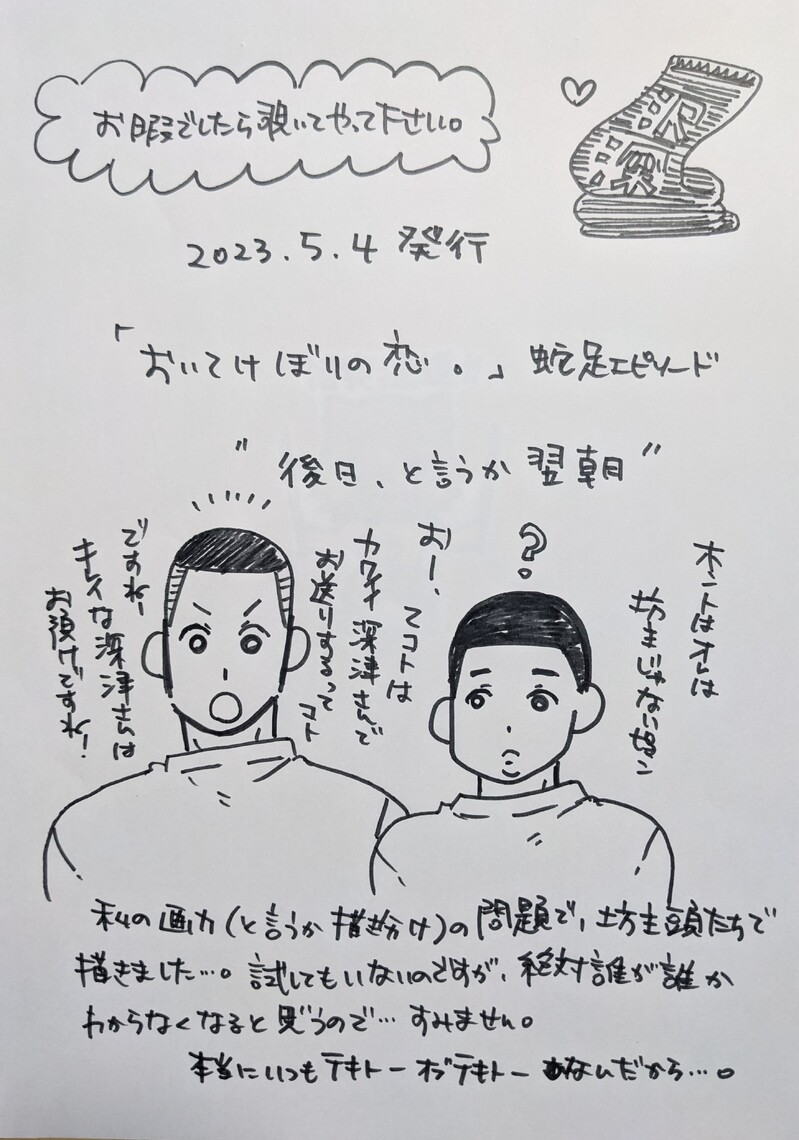 お暇でしたら覗いてやって下さい。
祝
2023.5.4 発行
「おいてけぼりの恋。」蛇足エピソード
"後日、と言うか翌朝"
ホントはオレは
坊主じゃない
?
おー、
てコトは
カワイイ深津さんで
お送りするって
コト
ですね!
キレイな深津さんは
お預けですね!
私の画力(と言うか描き分け)の問題で、坊主頭たちで
描きました…。試してもいないのですが、絶対誰が誰か
わからなくなると思うので…すみません。
本当にいつもテキトーオブテキトーなんだから…。